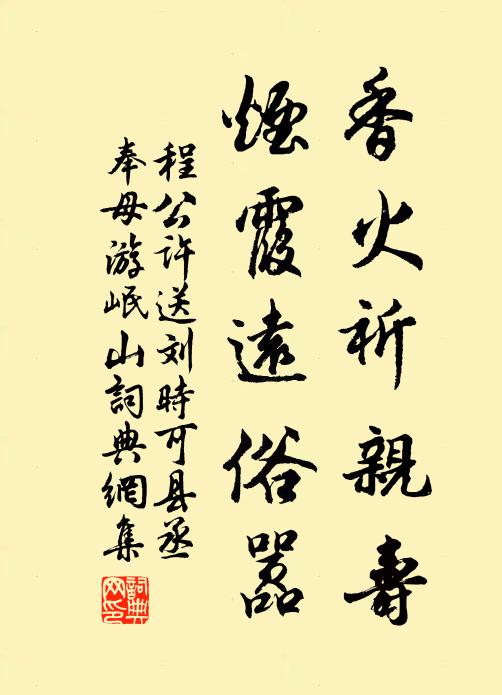 香火祈親壽
煙霞遠俗嚣
程公许送刘時可县丞
奉母游岷山詞典網集
詞典网印